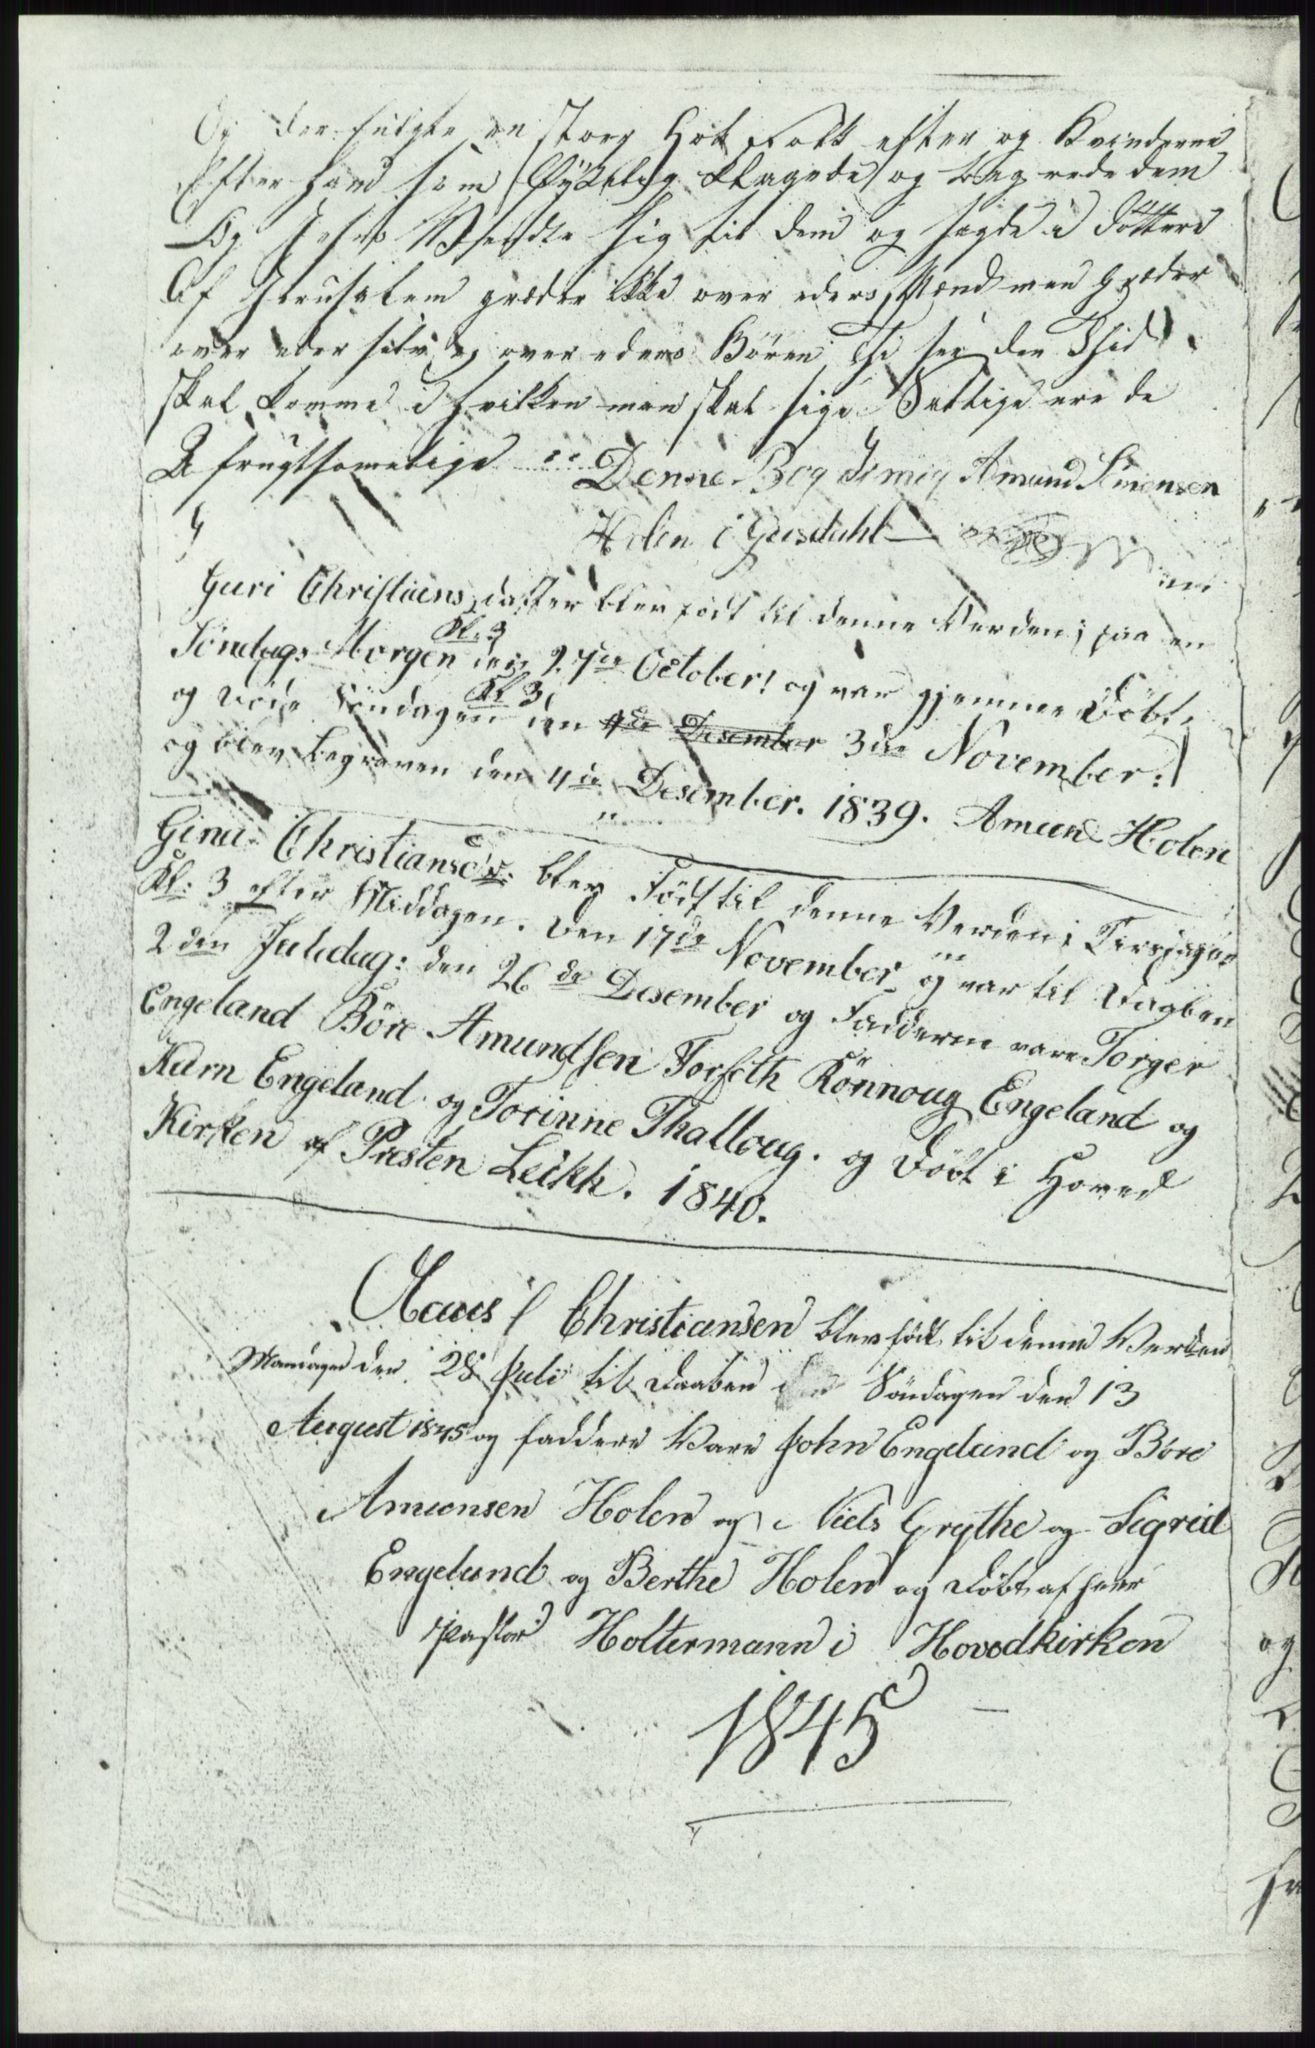 Og der fulgte en storg Hob Folk efter og Kvinderne
Efter ham som Ÿkelig klagede og beg rede dem
Og Jesus Vhendte sig til dem og sagde i Døttere
Af Jerusalem græder ikke over eders Mænd men græder
over eder selv og over eders Börn thi see den Thid
skal komme i hvilken man skal sige Sallige ere de
U frugtsomelige
Denne Bog Er mig Amund Simensen
Holen i Gusdahl
Guri Christians datter blev født til denne Verden; paa en
Söndags Morgen Kl: 3 den 27de October! og var gjemme Döbt,
og Döde Söndagen Kl 3 den 4de Desember 3die November:
og blev begraven den 4de Desember. 1839. Amund Holen
Gina Christiansd: blev Født til denne Verden; Tirsdagen
Kl: 3 efter Middagen. Den 17de November og var til Daaben
2den Juledag: den 26de Desember og Fadderne vare Torger
Engeland Böre Amundsen Forseth Rönnoug Engeland og
Karn Engeland og Torinne Thalloug. og Döbt i Hoved
Kirken af Presten Leikh. 1840.
Claus Christiansen blev født til denne Verden
Mandagen den 28 Juli til Daaben Söndagen den 13
August 1845 og faddere Vare John Engeland og Böre
Amunsen Holen og Niels Grythe og Sigrid
Engeland og Berthe Holen og Döbt af herr
Pastor Holtermann i Hovedkirken
1845